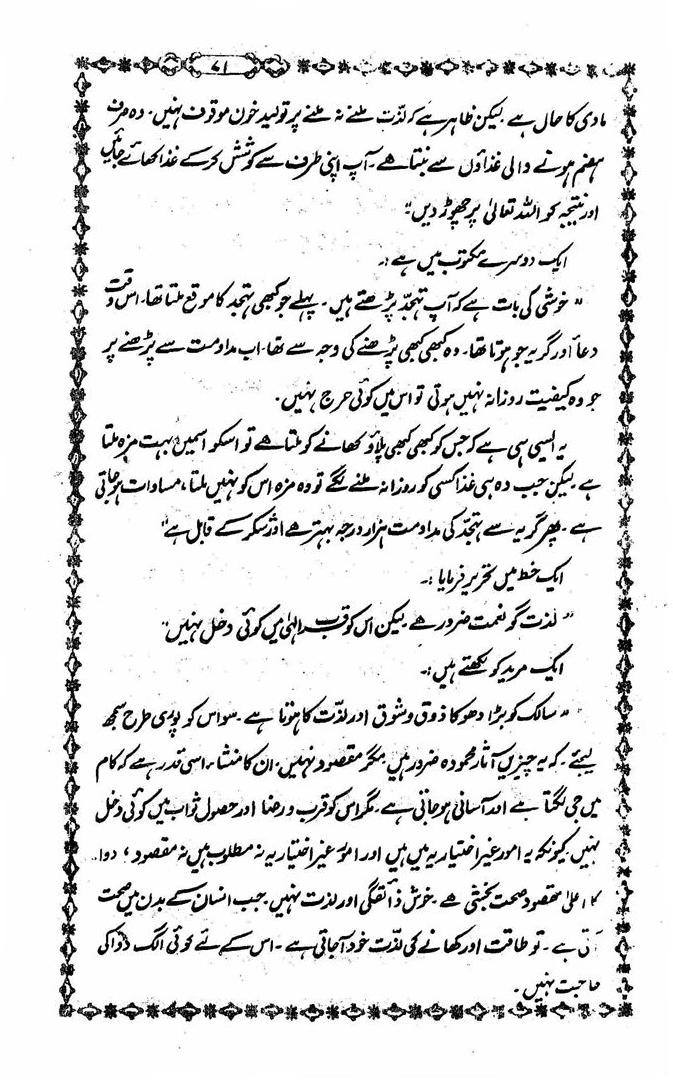 ۷۱
مادی کا حال ہے لیکن ظاہر ہے کہ لذّت ملنے نہ ملنے پر تولید خون موقوف نہیں۔ وہ صرف
ہضم ہونے والی غذاؤں سے بنتا ہے۔ آپ اپنی طرف سے کوشش کر کے غذا کھائے جائیں
اور نتیجہ کو اللہ تعالیٰ پر چھوڑ دیں"
ایک دوسرے مکتوب میں ہے :۔
" خوشی کی بات ہے کہ آپ تہجّد پڑھتے ہیں۔ پہلے جو کبھی تہجد کا موقع ملتا تھا۔ اس وقت
دعا اور گریہ جو ہوتا تھا۔ وہ کبھی کبھی پڑھنے کی وجہ سے تھا۔ اب مداومت سے پڑھنے پر
جو وہ کیفیت روزانہ نہیں ہوتی تو اس میں کوئی حرج نہیں۔
یہ ایسی ہی ہے کہ جس کو کبھی کبھی پلاؤ کھانے کو ملتا ہے تو اسکو اسمیں بہت مزہ ملتا
ہے لیکن جب وہ ہی غذا کسی کو روزانہ ملنے لگے تو وہ مزہ اس کو نہیں ملتا، مساوات ہو جاتی
ہے۔ پھر گریہ سے تہجّد کی مداومت ہزار درجہ بہتر ہے اور شکر کے قابل ہے"
ایک خط میں تحریر فرمایا :۔
" لذت گو نعمت ضرور ہے لیکن اس کو قرب الٰہی میں کوئی دخل نہیں"
ایک مرید کو لکھتے ہیں :۔
" سالک کو بڑا دھوکا ذوق و شوق اور لذّت کا ہوتا ہے۔ سو اس کو پوری طرح سمجھ
لیجئے۔ کہ یہ چیزیں آثار محمودہ ضرور ہیں مگر مقصود نہیں۔ ان کا منشاء اسی قدر ہے کہ کام
میں جی لگتا ہے اور آسانی ہو جاتی ہے۔ مگر اس کو قرب و رضا اور حصول ثواب میں کوئی دخل
نہیں کیونکہ یہ امور غیر اختیاریہ میں ہیں اور امور غیر اختیاریہ نہ مطلوب ہیں نہ مقصود، دوا
کا اعلیٰ مقصود صحت بخشی ہے۔ خوش ذائقگی اور لذت نہیں۔ جب انسان کے بدن میں صحت
آتی ہے۔ تو طاقت اور کھانے کی لذّت خود آجاتی ہے۔ اس کے لئے کوئی الگ دوا کی
حاجت نہیں۔